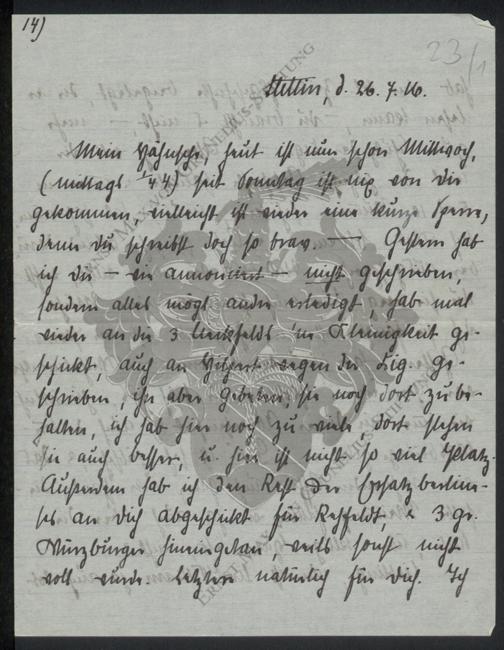 14)
23/1
Stettin, d. 26.7.16.
Mein Hähnsche, heut ist nun schon Mittwoch,
(mittags 1/4 4) seit Sonntag ist nix von dir
gekommen, vielleicht ist wieder eine kurze Sperre,
denn du schreibst doch so brav. — Gestern hab
ich dir — wie annonciert — nicht geschrieben,
sondern alles mögl. andre erledigt, hab mal
wieder an die 3 'ne Kleinigkeit ge-
schickt, auch an Hilpert wegen der Zig. ge-
schrieben, ihn aber gebeten, sie noch dort zu be-
halten, ich hab hier noch zu viele dort stehen
sie auch besser, u. hier ist nicht so viel Platz.
Außerdem hab ich den Rest der
an dich abgeschickt für Rehfeldt, 3 gr.
Würzburger hineingetan, weils sonst nicht
voll wurde. Letztere natürlich für dich. Ich